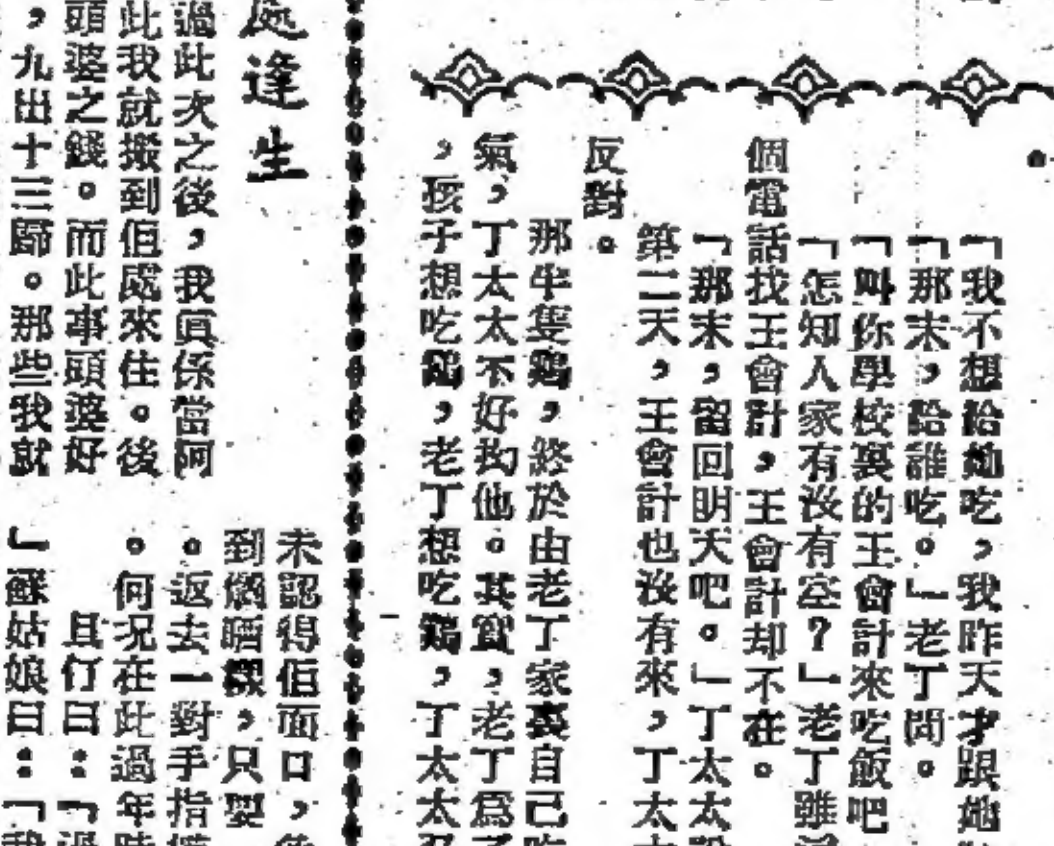 。
「我不想給她吃，我昨天才跟她
「那末，給誰吃。」老丁問。
「叫你學校裏的王會計來吃飯吧
「怎知人家有沒有空？」老丁雖
個電話找王會計，王會計却不在。
「那末，留回明天吧。」丁太太說
第二天，王會計也沒有來，丁太太
反對。
那半隻鷄，終於由老丁家裏自己吃
氣，丁太太不好約他。其實，老丁爲了
，孩子想吃鷄，老丁想吃鷄，丁太太
處逢生
過此次之後，我眞係當阿
此我就搬到佢處來住。後
頭婆之錢。而此事頭婆好
，九出十三歸。那些我就
未認得佢面口，
到爛晒，只要
。返去一對手指
。何況在此過年時
且仃曰：「過
」蘇姑娘曰：「我